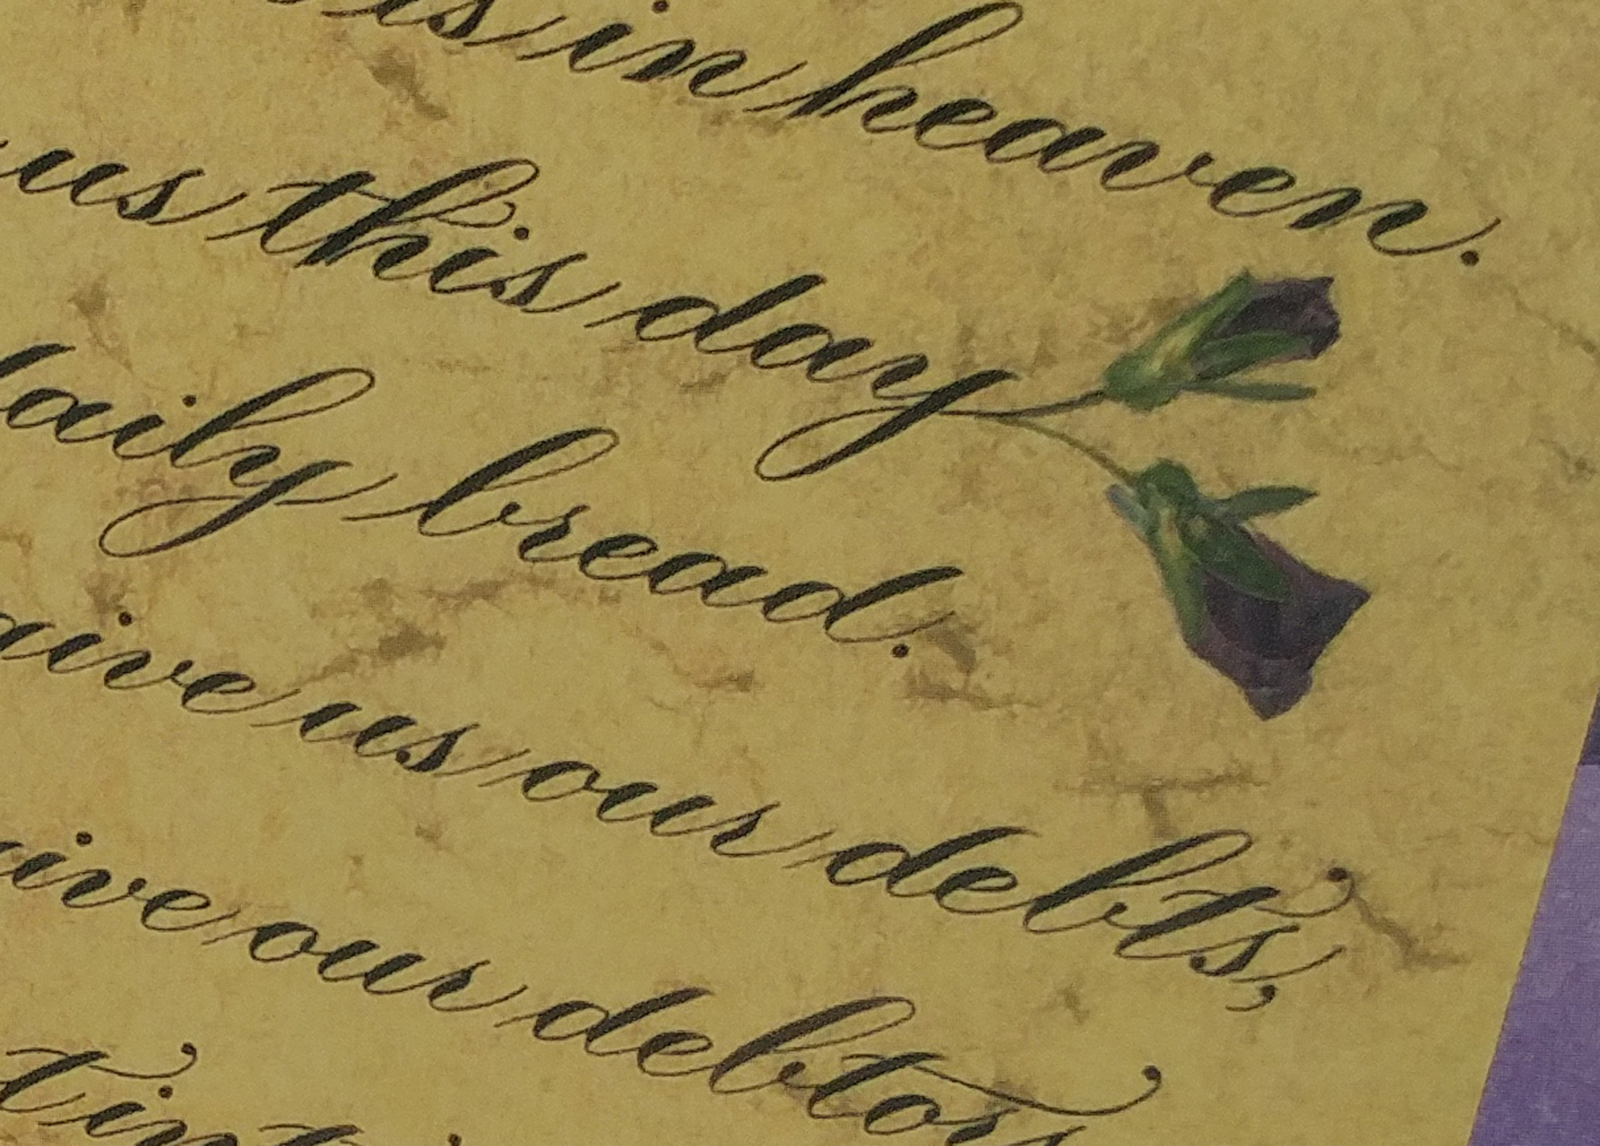 is in heaven.
us this day
daily bread.
give us our debts,
give our debtors